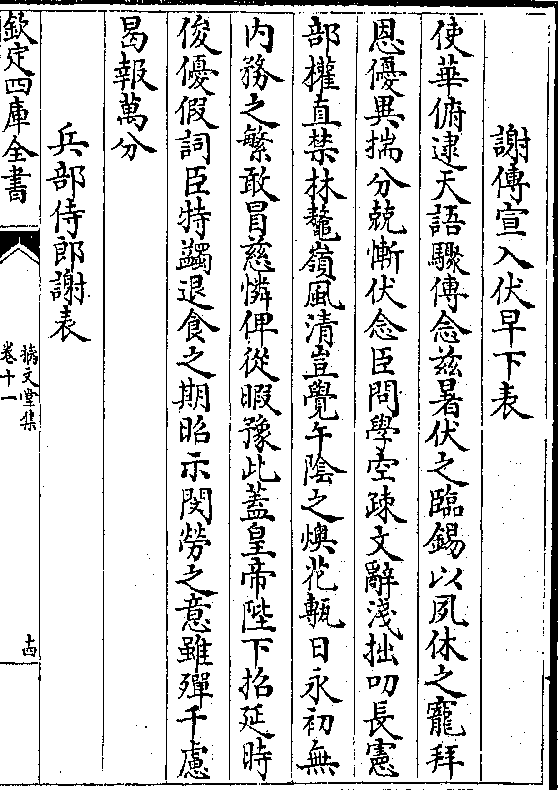 謝傳宣入伏早下表
使華俯逮天語驟傳念兹暑伏之臨錫以夙休之寵拜
恩優異揣分兢慚伏念臣問學空疎文辭淺拙叨長憲
部權直禁林鼇嶺風清豈覺午陰之燠花甎日永初無
内務之繁敢冒慈憐俾從暇豫此蓋皇帝陛下招延時
俊優假詞臣特蠲退食之期昭示閔勞之意雖殫千慮
曷報萬分
兵部侍郎謝表
欽定四庫全書
摛文堂集
卷十一
十四